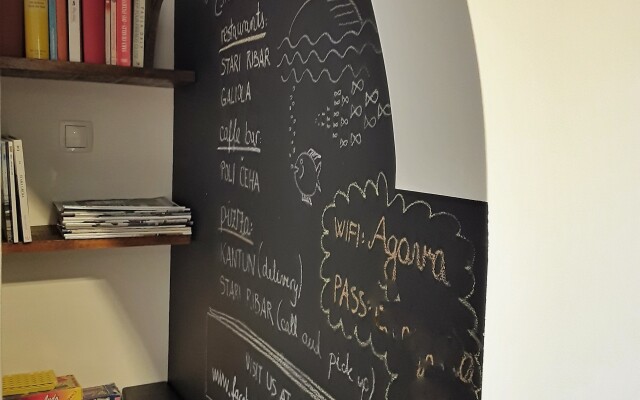 restaurants:
STARI RIBAR
GALIOLA
caffe bar:
POLI ČEHA
pizza:
KANTUN (delivery)
STARI RIBAR (call and pick up)
VISIT US AT
WIFI: Agava
PASS: